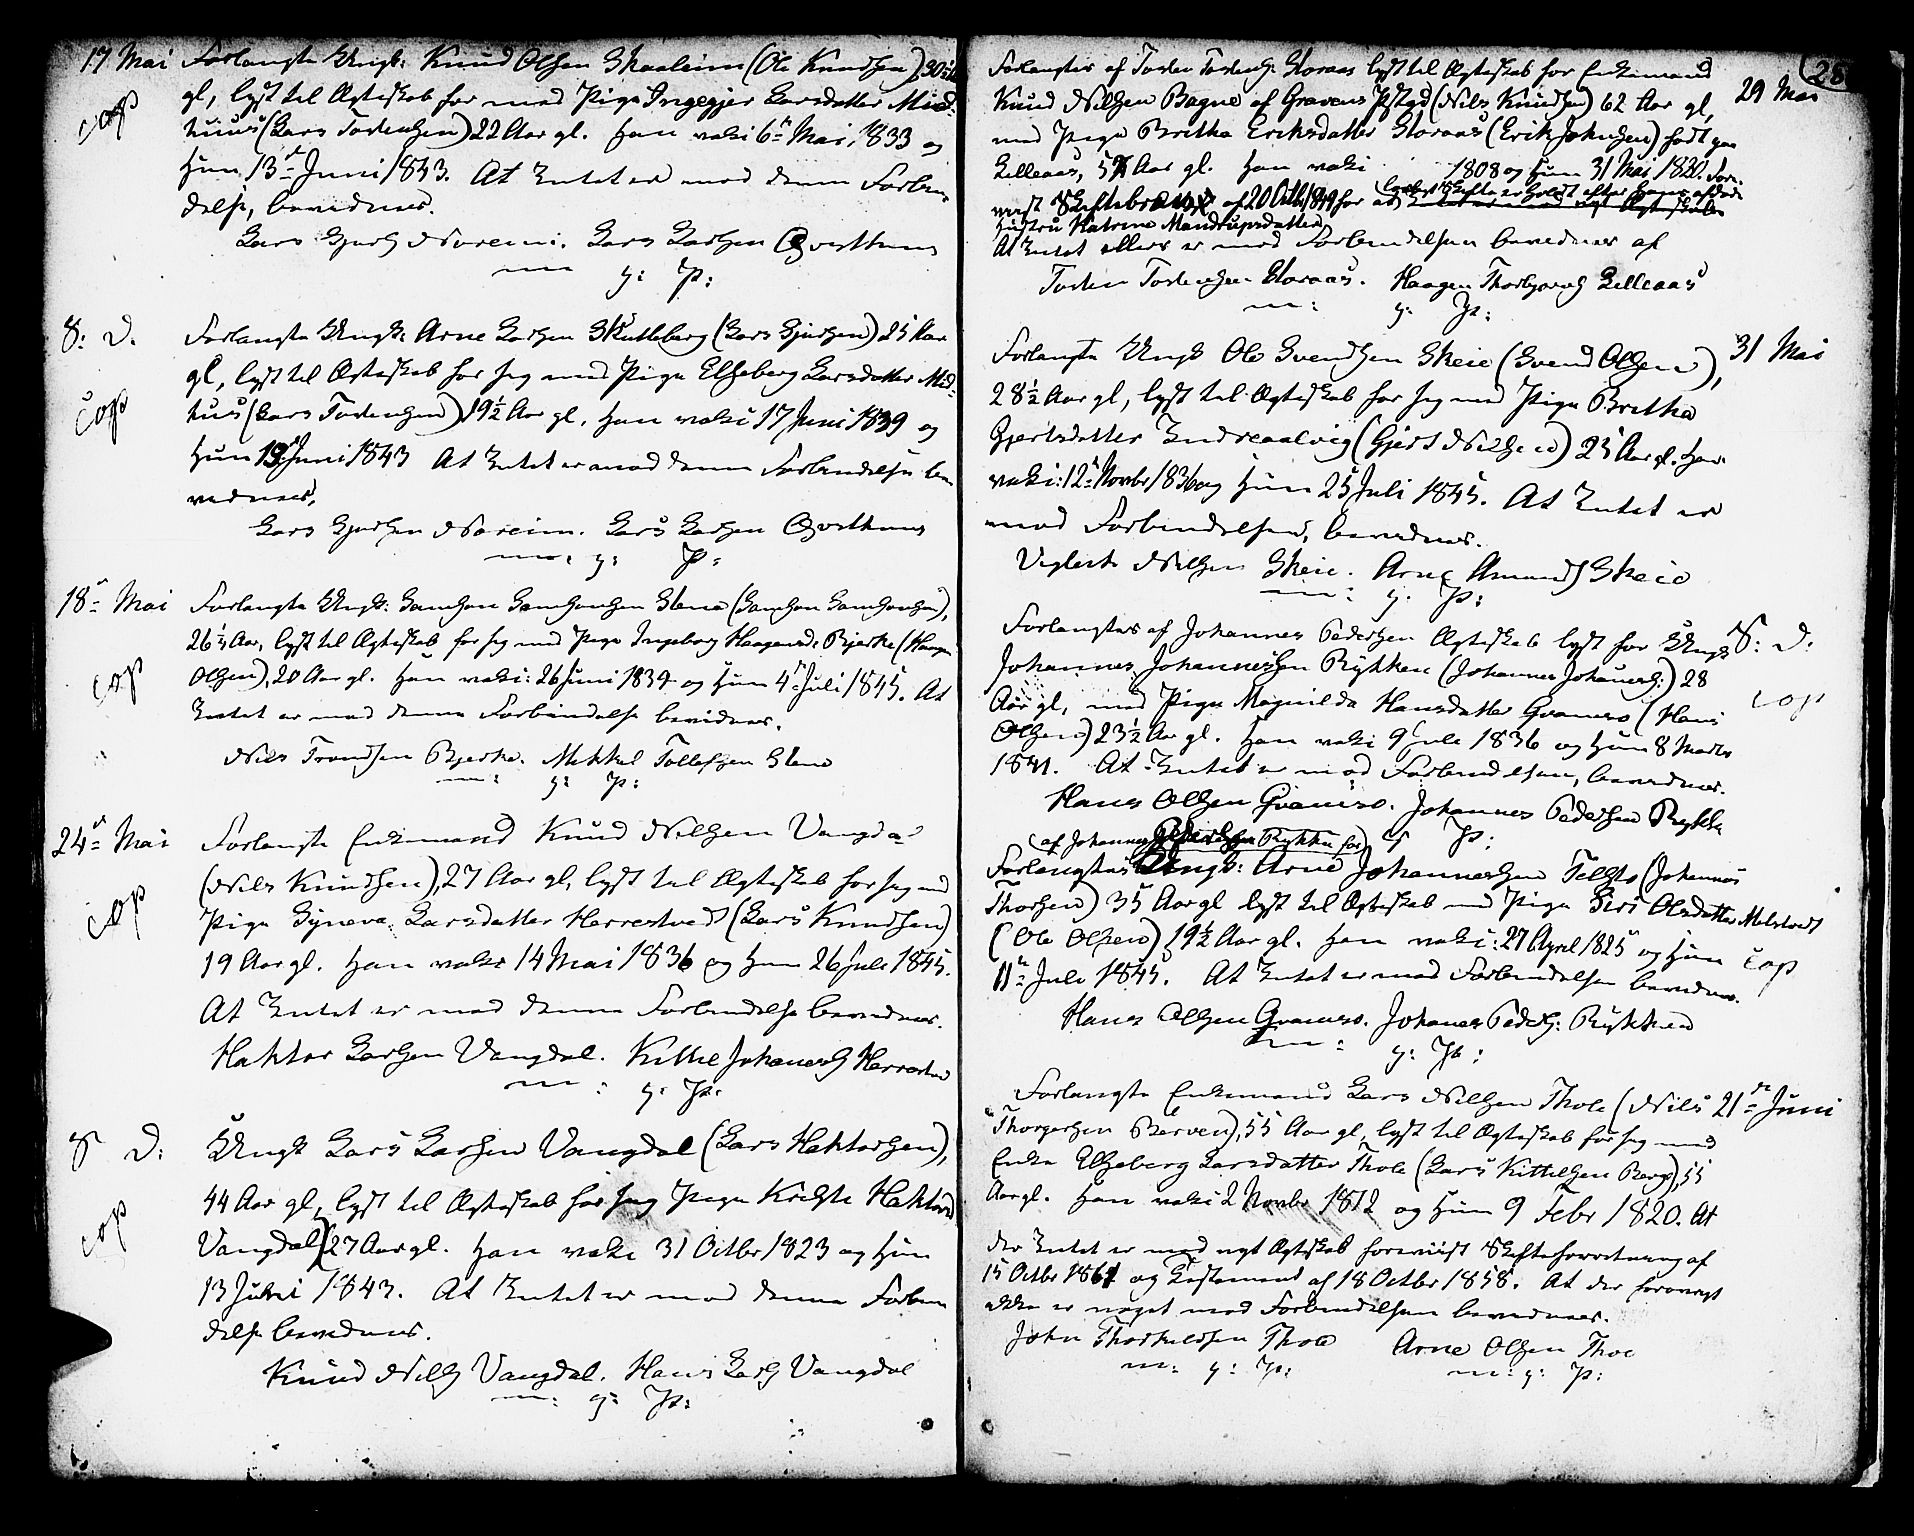 17 Mai Forlangte Ungk: Knud Olsen Skaaleim (Ole Knudsen) 30
gl, lyst til Ægteskab for med Pige Ingegjer Larsdatter Mid-
cop
huus (Lars Torsensen) 22 Aar gl. Han vaks 6te Mai 1833 og
Hun 13de Juni 1843. At Intet er mod denne Forbin-
delse, bevidnes.
Lars Gjers Noreim. Lars Larsen Qvesthuus
m: p: P:
S: D. Forlangte Ungk: Arne Larsen Skutleberg (Lars Gjersen) 25 Aar
gl, lyst til Ægteskab for sig med Pige Elseberg Larsdatter Mid-
cop
huus (Lars Torsensen) 19½ Aar gl. Han vaks 17 Juni 1839 og
Hun 13 Juni 1843 At Intet er mod denne Forbindelse be-
vidnes.
Lars Gjersen Noreim. Lars Larsen Qvesthuus
m: p: P:
18de Mai Forlangte Ungk: Samson Samsonsen Stene (Samson Samsonsen),
26½ Aar, lyst til Ægteskab for sig med Pige Ingeborg Haagensd: Bjerke (Haagen
cop
Olsen), 20 Aar gl. Han vaks: 26 Juni 1834 og Hun 4de Juli 1845. At
Intet er mod denne Forbindelse bevidnes.
Nils Trondsen Bjerke. Mikkel Tollefsen Stene
m: p: P:
24de Mai Forlangte Enkemand Knud Nilsen Vangdal
(Nils Knudsen), 27 Aar gl, lyst til Ægteskab for sig med
cop
Pige Synneva Larsdatter Herrestved (Lars Knudsen)
19 Aar gl. Han vaks 14 Mai 1836 og Hun 26 Juli 1845.
At Intet er mod denne Forbindelse bevidnes.
Haktor Larsen Vangdal. Kittil Johannes Herrestved
m: p: P:
S D: Ungk Lars Larsen Vangdal (Lars Haktorsen),
44 Aar gl, lyst til Ægteskab for sig Pige Kristi Haktorsd
cop
Vangdal 27 Aar gl. Han vaks 31 Octbr 1823 og Hun
13 Juni 1843. At Intet er mod denne Forbin
delse bevidnes.
Knud Nils Vangdal. Hans Lars Vangdal
m: p: P:
28
Forlangtes af Torsten Torstens: Storaas lyst til Ægteskab for Enkemand
29 Mai
Knud Nilsen Bagne af Gravens Pstgd (Nils Knudsen) 62 Aar gl,
med Pige Britha Eriksdatter Storaas (Erik Johnsen) født paa
Lilleaas, 51 Aar gl. Han vaks 1808 og Hun 31 Mai 1820. Fore-
vist Skiftebrev af 20 Octb 1849 for at
lovligt Skifte er holdt efter hans afdøde
Hustru Katrine Mandrupsdatter
At Intet ellers er mod Forbindelsen bevidnes af
Torsten Torstensen Storaas. Haagen Thorbjørns Lilleaas
m: p: P:
Forlangte Ungk Ole Svendsen Skeie (Svend Olsen),
31 Mai
28½ Aar gl, lyst til Ægteskab for sig med Pige Britha
Gjertsdatter Indreaalvig (Gjert Nilsen) 25 Aar gl. Han
vaks: 12te Novbr 1836 og Hun 25 Juli 1845. At Intet er
mod Forbindelsen, bevidnes.
Viglert Nilsen Skeie. Arne Amunds Skeie
m: p: P:
Forlangtes af Johannes Pedersen Ægteskab lyst for Ungk
S: D:
Johannes Johannessen Rykken (Johannes Johannes:) 28
cop
Aar gl, med Pige Magnilda Hansdatter Gravens (Hans
Olsen) 23½ Aar gl. Han vaks 9 Juli 1836 og Hun 8 Marts
1841. At Intet er mod Forbindelsen, bevidnes.
Hans Olsen Gravens. Johannes Pedersen Rykke
p: P:
af Johannes Pedersen Rykke for
Forlangtes Ungk: Arne Johannessen Tellsto (Johannes
Thorsen) 35 Aar gl lyst til Ægteskab med Pige Siri Olsdatter Melstved
(Ole Olsen) 19½ Aar gl. Han vaks: 27 April 1825 og Hun
cop
11te Juli 1845. At Intet er mod Forbindelsen bevidnes.
Hans Olsen Gravens. Johannes Peders: Rykken
m: p: P:
Forlangte Enkemand Lars Nilsen Thole (Nils
21de Juni
Thorgersen Berven), 55 Aar gl, lyst til Ægteskab for sig med
Enke Elseberg Larsdatter Thole (Lars Kittelsen Berg), 55
Aar gl. Han vaks 2 Novbr 1812 og Hun 9 Febr 1820. At
der Intet er mod nyt Ægteskab foreviist Skifteforretning af
15 Octbr 1861 og Testament af 18 Octbr 1858. At der forøvrigt
ikke er noget mod Forbindelsen bevidnes.
John Thorkildsen Thole Arne Olsen Thoe
m: p: P: m: p: P: